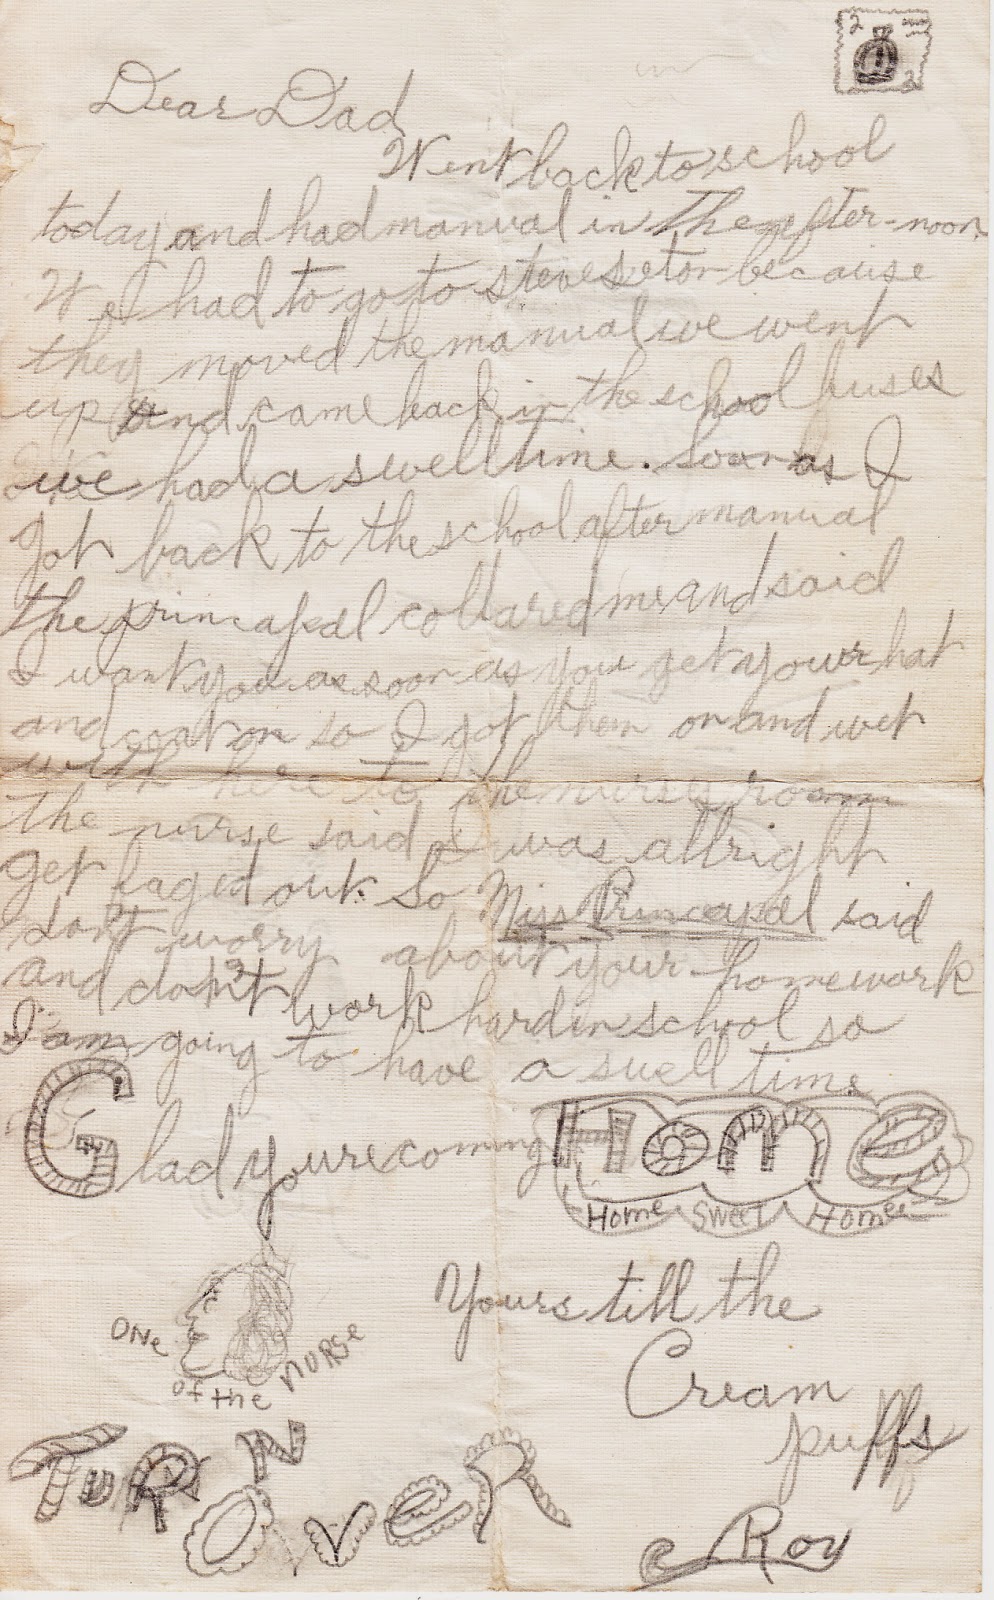 2
2
Dear Dad
Went back to school
today and had manual in the after-noon
We had to go to steveseton because
they moved the manual we went
up and came back in the school buses
we had a swell time. Soon as I
got back to the school after manual
the princapal collared me and said
I want you as soon as you get your hat
and coat on so I got them on and wet
with here to the nurses room
the nurse said I was allright
get faged out. So Miss Princapal said
don't worry about your homework
and don't work hard in school so
I am going to have a swell time
Glad youre coming Home
Home Sweet Home
Yours till the
Cream
puffs
One of the nurse
Turn Over
Roy